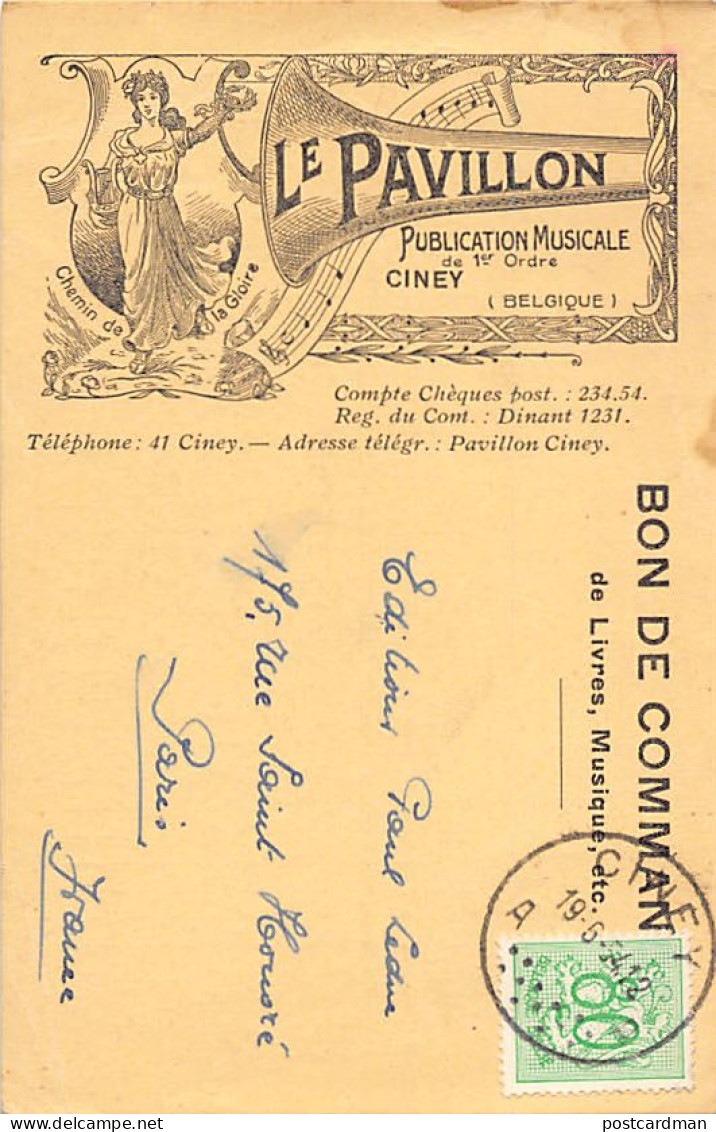 LE PAVILLON
PUBLICATION MUSICALE
de 1er Ordre
CINEY
(BELGIQUE)
Chemin de la Gloire
Compte Chèques post. : 234.54.
Reg. du Com. : Dinant 1231.
Téléphone: 41 Ciney. — Adresse télégr.: Pavillon Ciney.
BON DE COMMAN
de Livres, Musique, etc.
Editions Paul Leduc
175, rue Saint Honoré
Paris
France
CINEY
A
80
postcardman